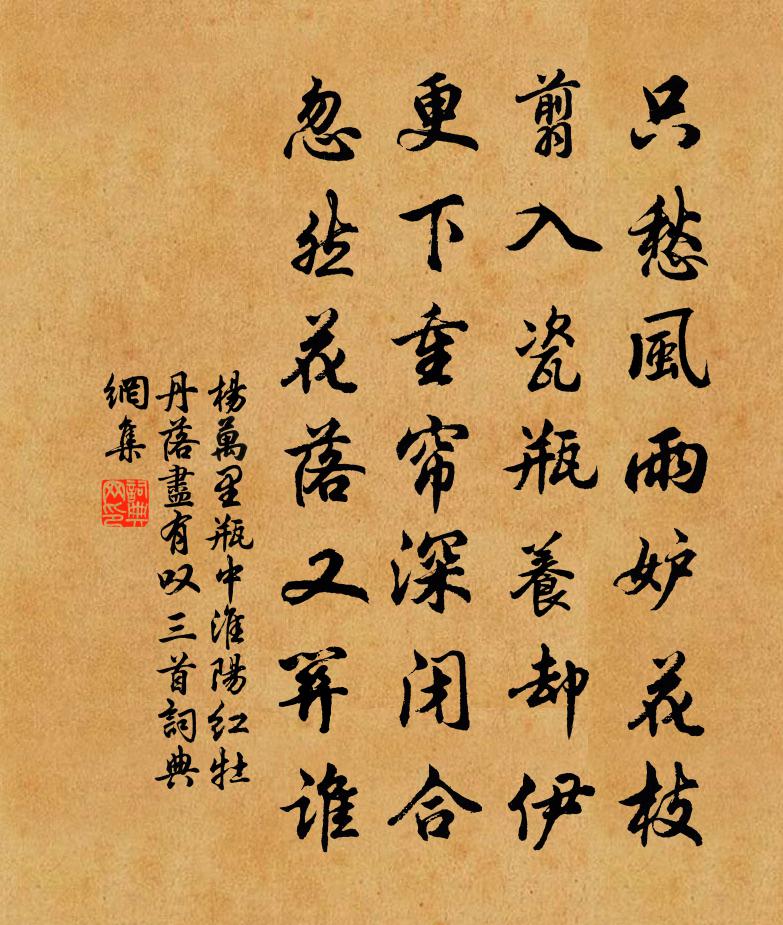 只愁風雨妒花枝
翦入瓷瓶養却伊
更下重帘深闭合
忽然花落又誰
楊萬里瓶中淮陽红牡
丹落盡有叹三首詞典
網集
詞典
网印